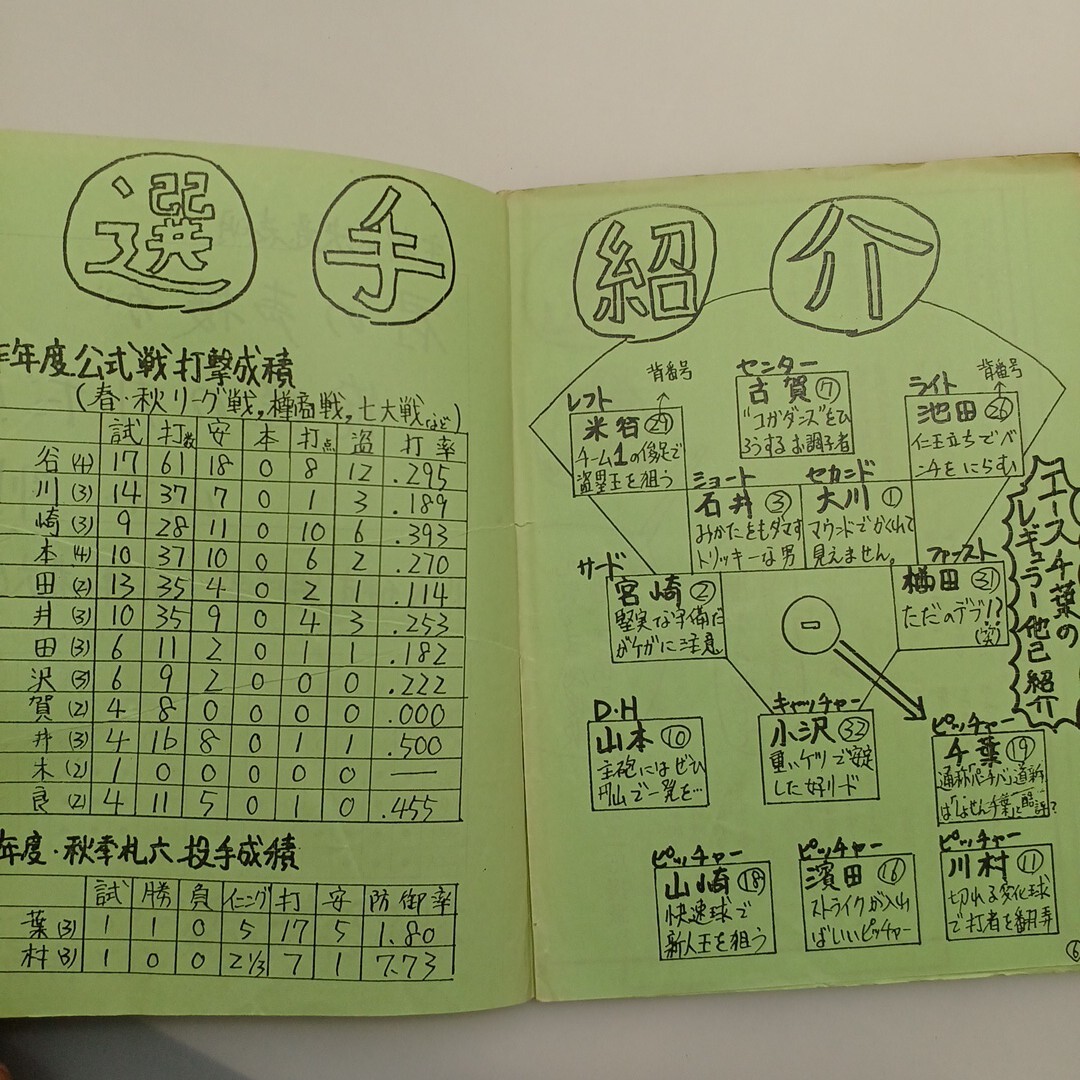 選手
年度公式戦打撃成積
(春・秋リーグ戦,樽商戦,七大戦など)
試 打数 安 本 打点 盗 打率
谷(4) 17 61 18 0 8 12 .295
川(3) 14 37 7 0 1 3 .189
崎(3) 9 28 11 0 10 6 .393
本(4) 10 37 10 0 6 2 .270
田(2) 13 35 4 0 2 1 .114
井(3) 10 35 9 0 4 3 .253
田(3) 6 11 2 0 1 1 .182
沢(3) 6 9 2 0 0 0 .222
賀(2) 4 8 0 0 0 0 .000
井(3) 4 16 8 0 1 1 .500
木(2) 1 0 0 0 0 0 —
良(2) 4 11 5 0 1 0 .455
年度・秋季札六投手成積
試 勝 負 イニング 打 安 防御率
葉(3) 1 1 0 5 17 5 1.80
村(3) 1 0 0 2 1/3 7 1 7.73
紹介
センター
古賀⑦
"コガダンス"をひ
ろうするお調子者
背番号
レフト
米谷㉙
チーム1の俊足で
盗塁王を狙う
背番号
ライト
池田㉖
仁王立ちでベ
ンチをにらむ
ショート
石井③
みかたをもダマす
トリッキーな男
セカンド
大川①
マウンドでかくれて
見えません。
サード
宮崎②
堅実な守備だ
がケガに注意。
ファースト
樋田㉛
ただのデブ!?
(笑)
エース千葉の
レギュラー他己紹介
D・H
山本⑩
主砲にはぜひ
円山で一発を…
キャッチャー
小沢㉜
重いケツで安定
した好リード
ピッチャー
千葉⑲
ピッチャー
山崎⑱
快速球で
新人王を狙う
ピッチャー
濱田⑯
ストライクが入れ
ばいいピッチャー
ピッチャー
川村⑪
切れる変化球
で打者を翻弄
⑥